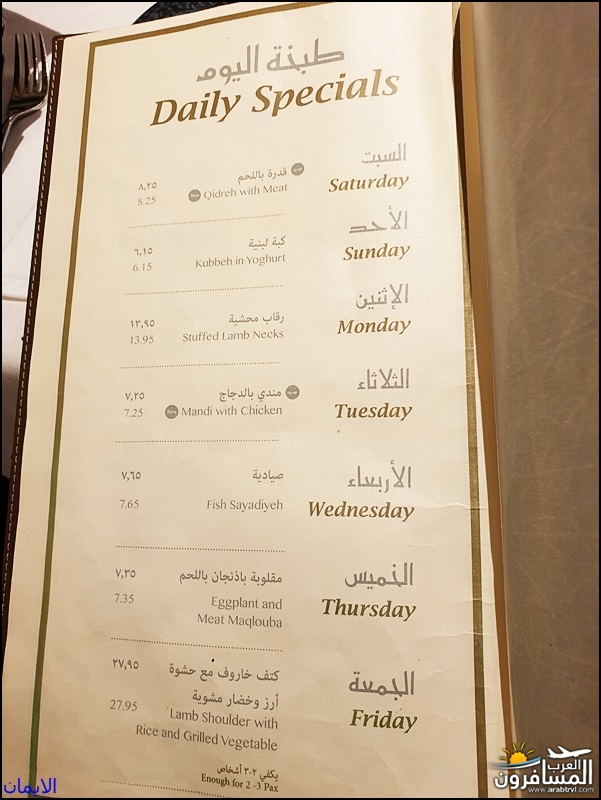 طبخة اليوم
Daily Specials
السبت
Saturday
قدرة باللحم
٨,٢٥
Qidreh with Meat
8.25
الأحد
Sunday
كبة لبنية
٦,١٥
Kubbeh in Yoghurt
6.15
الإثنين
Monday
رقاب محشية
١٣,٩٥
Stuffed Lamb Necks
13.95
الثلاثاء
Tuesday
مندي بالدجاج
٧,٢٥
Mandi with Chicken
7.25
الأربعاء
Wednesday
صيادية
٧,٦٥
Fish Sayadiyeh
7.65
الخميس
Thursday
مقلوبة باذنجان باللحم
٧,٣٥
Eggplant and
Meat Maqlouba
7.35
الجمعة
Friday
كتف خاروف مع حشوة
أرز وخضار مشوية
٢٧,٩٥
Lamb Shoulder with
Rice and Grilled Vegetable
27.95
يكفي ٢-٣ أشخاص
Enough for 2 -3 Pax
الايمان
العرب
المسافرون
www.arabtrvl.com